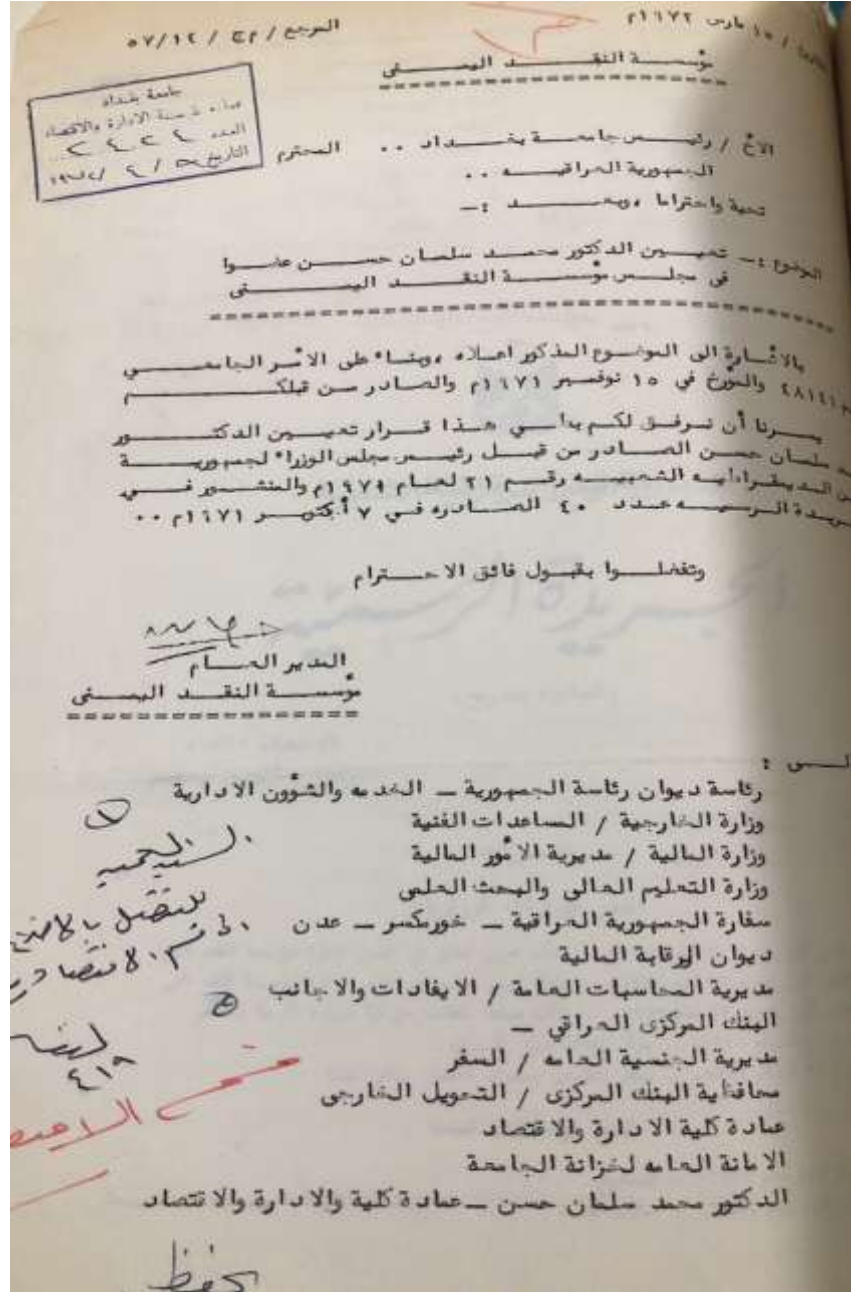 ١٥ مارس ١٩٧٢م
المرجع / ٤٢ / مج / ٥٧/١٢
مؤسسة النقد اليمنى
جامعة بغداد
عمادة كلية الادارة والاقتصاد
العدد ٢٤٢٤
التاريخ
الاخ / رئيس جامعة بغداد .. المحترم
الجمهورية العراقيه ..
تحية واحتراما ،وبعد :ــ
الموضوع :ــ تعيين الدكتور محمد سلمان حسن عضوا
فى مجلس مؤسسة النقد اليمنى
بالاشارة الى الموضوع المذكور اعلاه ،وبناء على الامر الجامعى
٢٨١٤١ والمؤرخ في ١٥ نوفمبر ١٩٧١م والصادر من قبلكم
يسرنا أن نرفق لكم بطى هذا قرار تعيين الدكتور
سلمان حسن الصادر من قبل رئيس مجلس الوزراء لجمهورية
الديمقراطيه الشعبيه رقم ٢١ لعام ١٩٧١م والمنشور فى
الجريدة الرسميه عدد ٤٠ الصادره فى ٧ أكتوبر ١٩٧١م ..
وتفضلوا بقبول فائق الاحترام
المدير العام
مؤسسة النقد اليمنى
رئاسة ديوان رئاسة الجمهورية ــ الخدمه والشؤون الادارية
وزارة الخارجية / المساعدات الفنية
وزارة المالية / مديرية الامور المالية
وزارة التعليم العالى والبحث العلمى
سفارة الجمهورية العراقية ــ خورمكسر ــ عدن
ديوان الرقابة المالية
مديرية المحاسبات العامة / الايفادات والاجانب
البنك المركزى العراقي ــ
مديرية الجنسية العامه / السفر
محافظية البنك المركزى / التحويل الخارجى
عمادة كلية الادارة والاقتصاد
الامانة العامه لخزانة الجامعة
الدكتور محمد سلمان حسن ــ عمادة كلية والادارة والاقتصاد
للتفضل
حفظ